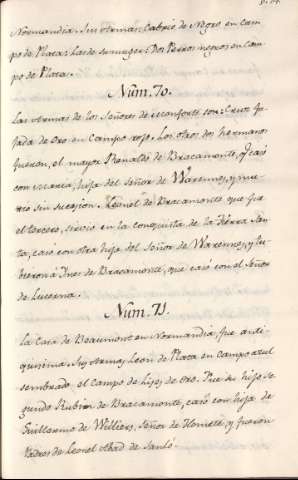 Normandia. Sus Armas: Cabrio de Negro en Cam
po de Plata: Las de su muger: Dos Perros negros en Cam
po de Plata.
Núm. 70.
Las Armas de los Señores de Monfort son: Cruz fi
jada de Oro en Campo rojo. Los otros dos hermanos
fueron, el mayor Renaldo de Bracamonte, q casó
con Maria, hija del Señor de Warennes, y mu
rió sin sucesion. Leonel de Bracamonte que fue
el tercero, sirvió en la conquista de la Tierra San
ta, casó con otra hija del Señor de Warennes, y tu
bieron a Ines de Bracamonte, que casó con el Señor
de Lucerna.
Núm. 71.
La Casa de Beaumont en Normandia, fue anti
quisima. Sus Armas, Leon de Plata en Campo azul
sembrado el Campo de Lises de Oro. Fue su hijo se
gundo Rubin de Bracamonte, casó con hija de
Guillermo de Williers, Señor de Homete, y fueron
Padres de Leonel Abad de Sanló.